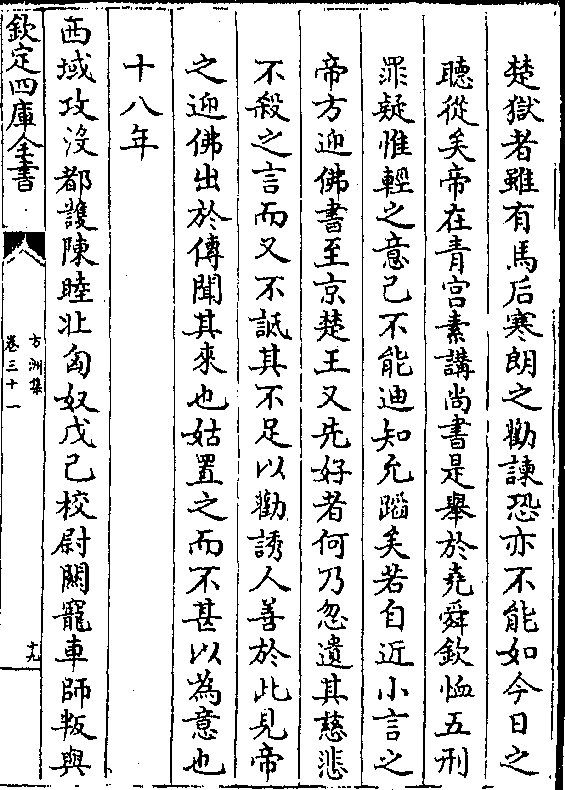 楚獄者雖有馬后寒朗之勸諫恐亦不能如今日之
聽從矣帝在青宮素講尚書是舉於堯舜欽恤五刑
罪疑惟輕之意已不能迪知允蹈矣若自近小言之
帝方迎佛書至京楚王又先好者何乃忽遺其慈悲
不殺之言而又不詆其不足以勸誘人善於此見帝
之迎佛出於傳聞其來也姑置之而不甚以為意也
十八年
西域攻沒都護陳睦北匈奴戊己校尉關寵車師叛與
欽定四庫全書
方洲集
卷三十一
十九